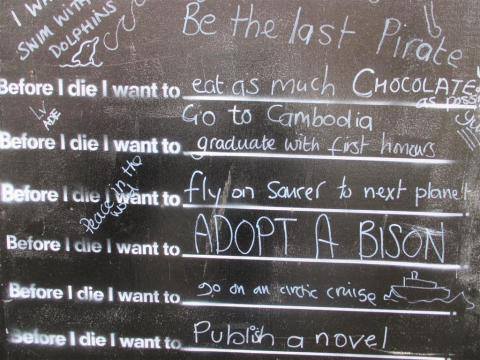 I WA
SWIM WITH
DOLPHINS
Be the last Pirate
Before I die I want to eat as much CHOCOLATE
as poss
LV
ADE
Go to Cambodia
Before I die I want to graduate with first honours
Before I die I want to fly on saucer to next planet
Peace in the
World
Before I die I want to ADOPT A BISON
Before I die I want to go on an arctic cruise
Before I die I want to Publish a novel